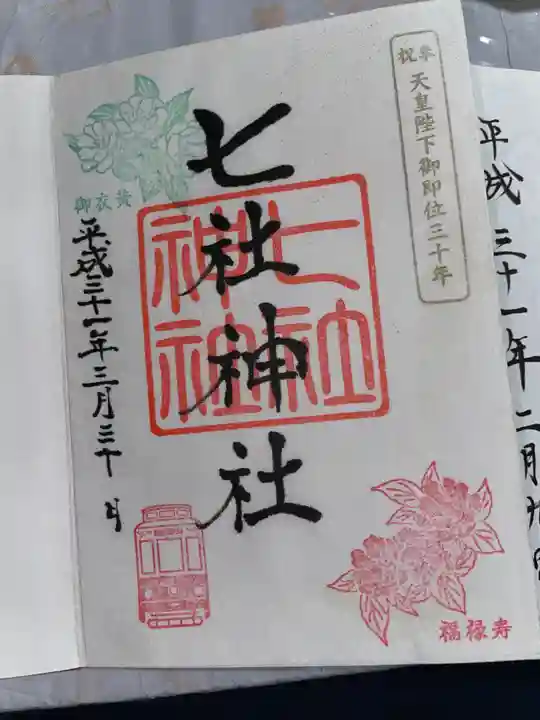 平成三十一年二月
奉祝
天皇陛下御即位三十年
七社神社
七社神社
御衣黄
平成三十一年三月三十日
福禄寿